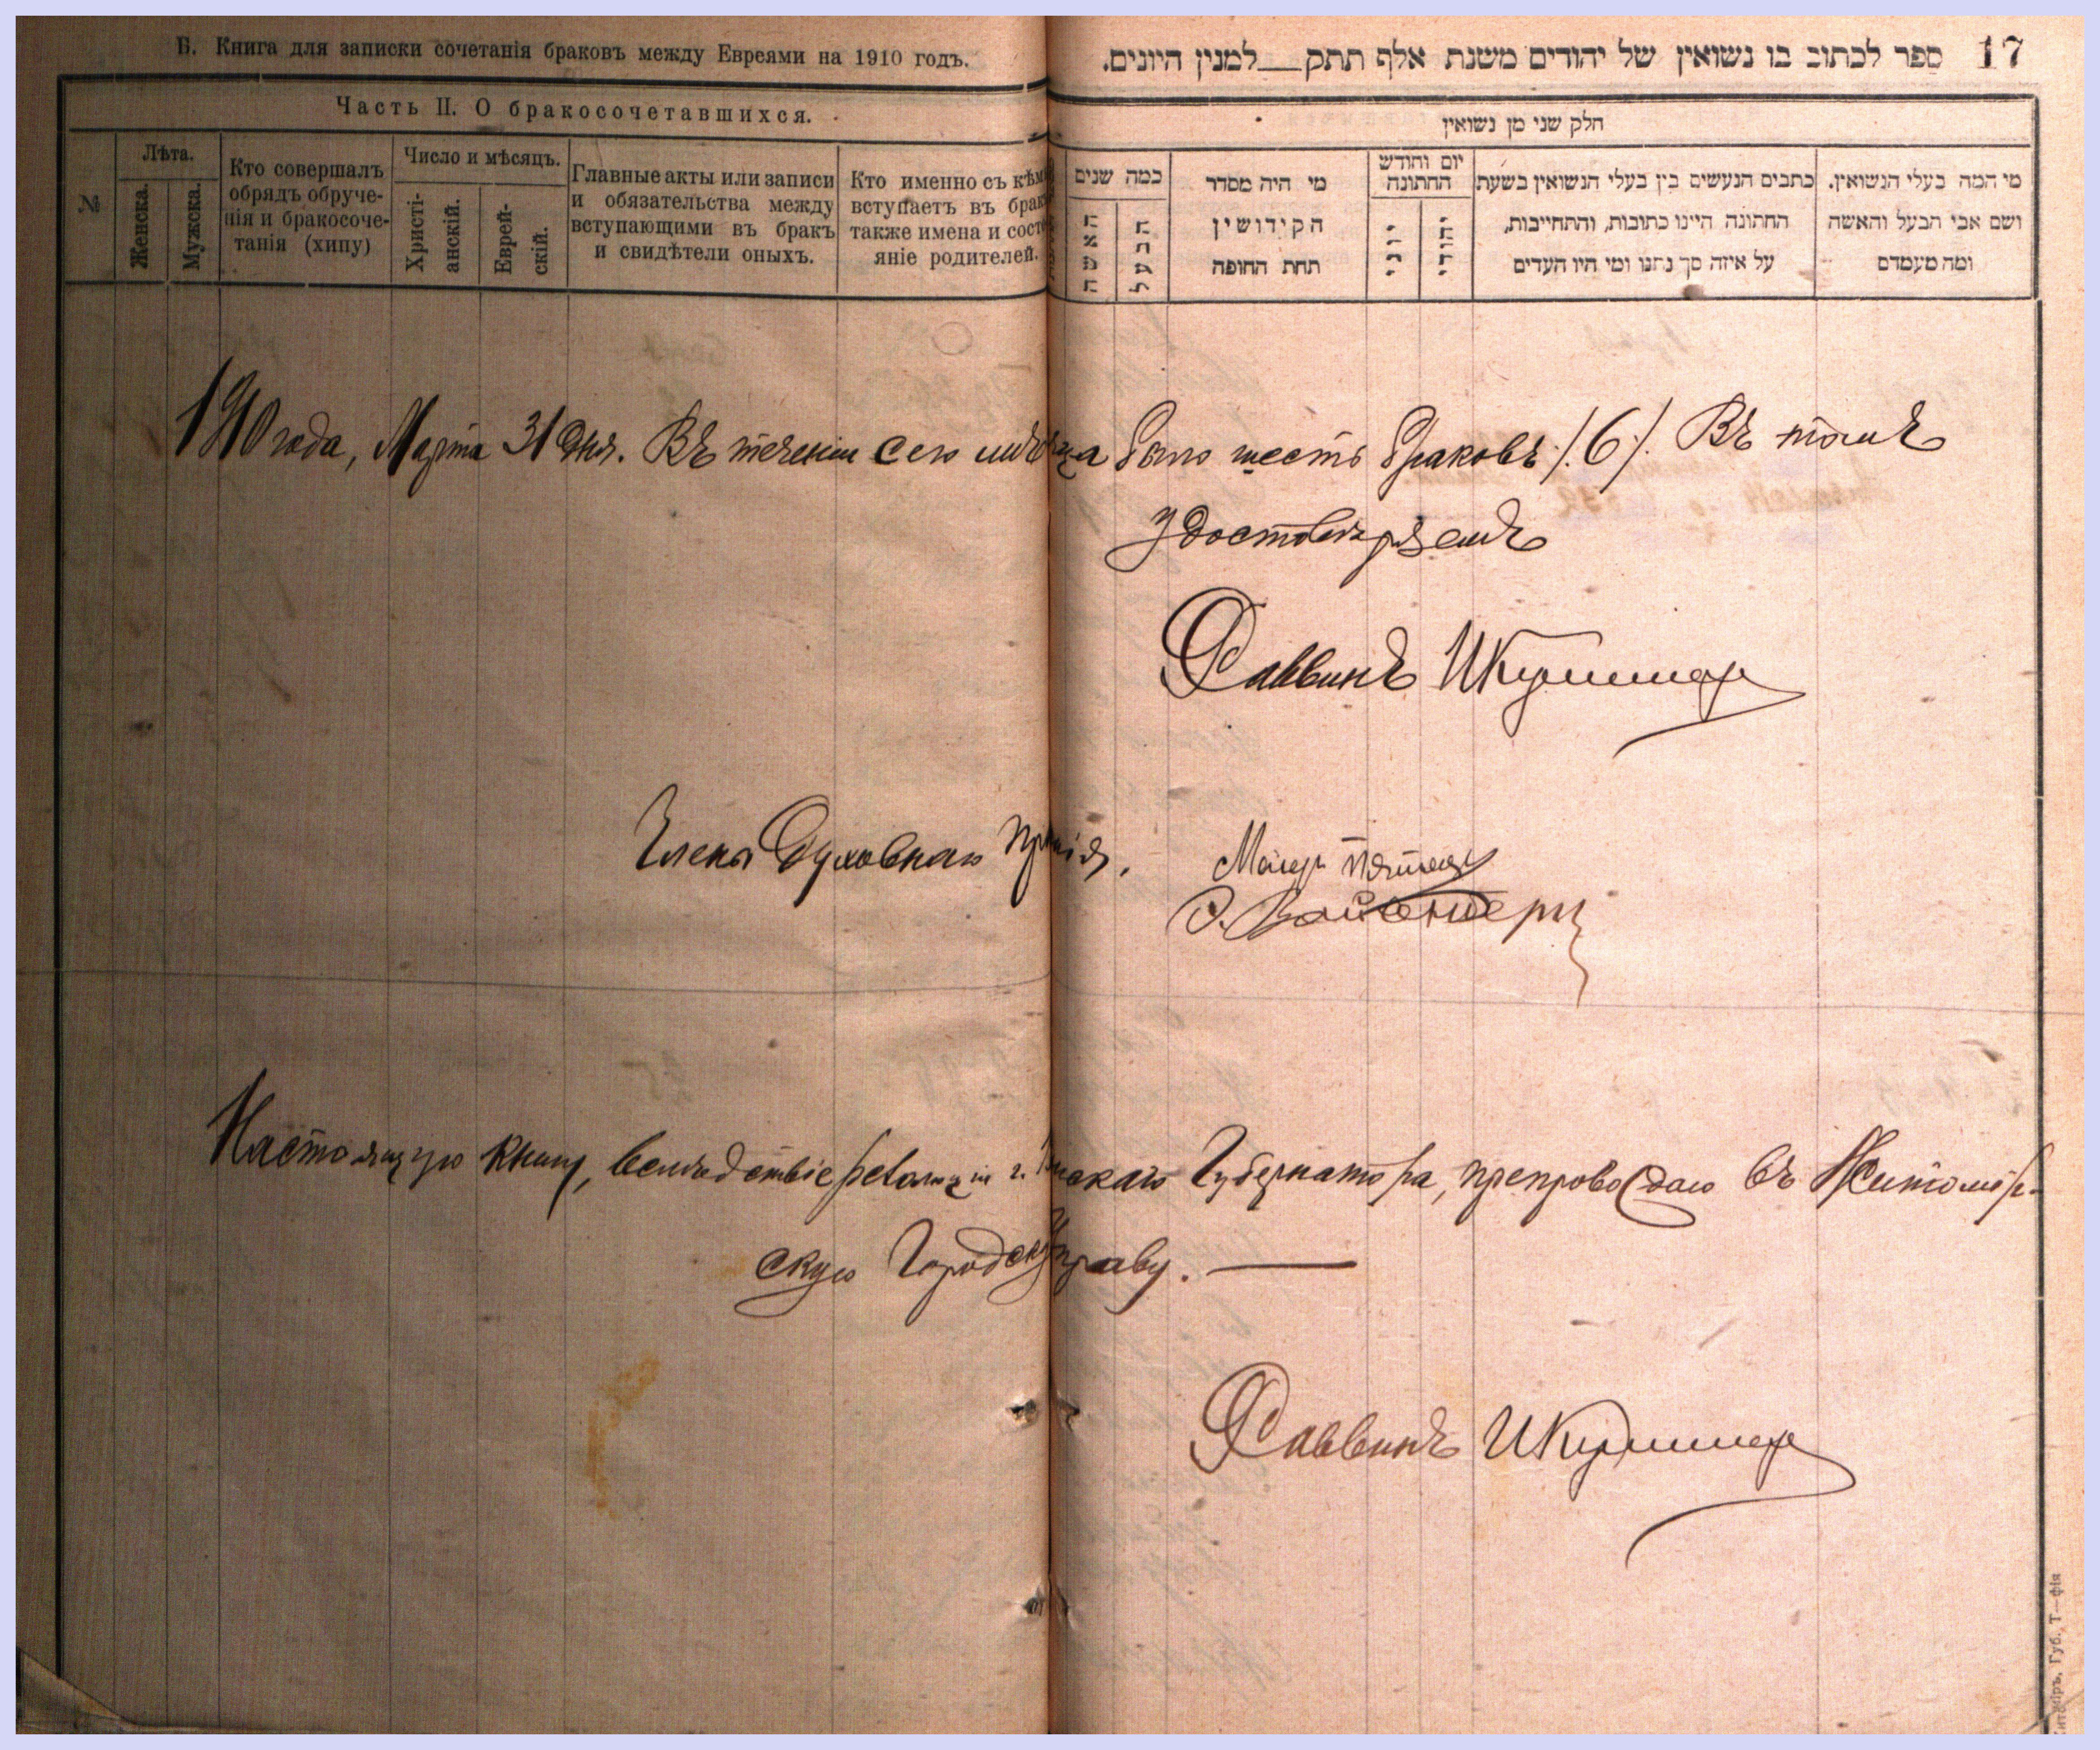 Б. Книга для записки сочетанія браковъ между Евреями на 1910 годъ.
Часть II. О бракосочетавшихся.
№
Лѣта.
Женска.
Мужска.
Кто совершалъ
обрядъ обруче-
нія и бракосоче-
танія (хипу)
Число и мѣсяцъ.
Христі-
анскій.
Еврей-
скій.
Главные акты или записи
и обязательства между
вступающими въ бракъ
и свидѣтели оныхъ.
Кто именно съ кѣмъ
вступаетъ въ бракъ
также имена и состо
яніе родителей.
17 ספר לכתוב בו נשואין של יהודים משנת אלף תתק__למנין היונים.
חלק שני מן נשואין
כמה שנים
האשה
הבעל
מי היה מסדר
הקידושין
תחת החופה
יום וחודש
החתונה
יוני
יהודי
כתבים הנעשים בין בעלי הנשואין בשעת
החתונה היינו כתובות, והתחייבות,
על איזה סך נתנו ומי היו העדים
מי המה בעלי הנשואין.
ושם אבי הבעל והאשה
ומה מעמדם
1910 года, Марта 31 дня. Въ теченіи сего мѣсяца было шесть браковъ /.6./. Въ томъ
удостовѣряемъ
Раввинъ
Члены Духовнаго Пр нія,
Настоящую книгу, вслѣдствіе резолюціи г. скаго Губернатора, препровождаю въ Житомір-
скую Городскую Управу. —
Раввинъ
Губ. Т—фія